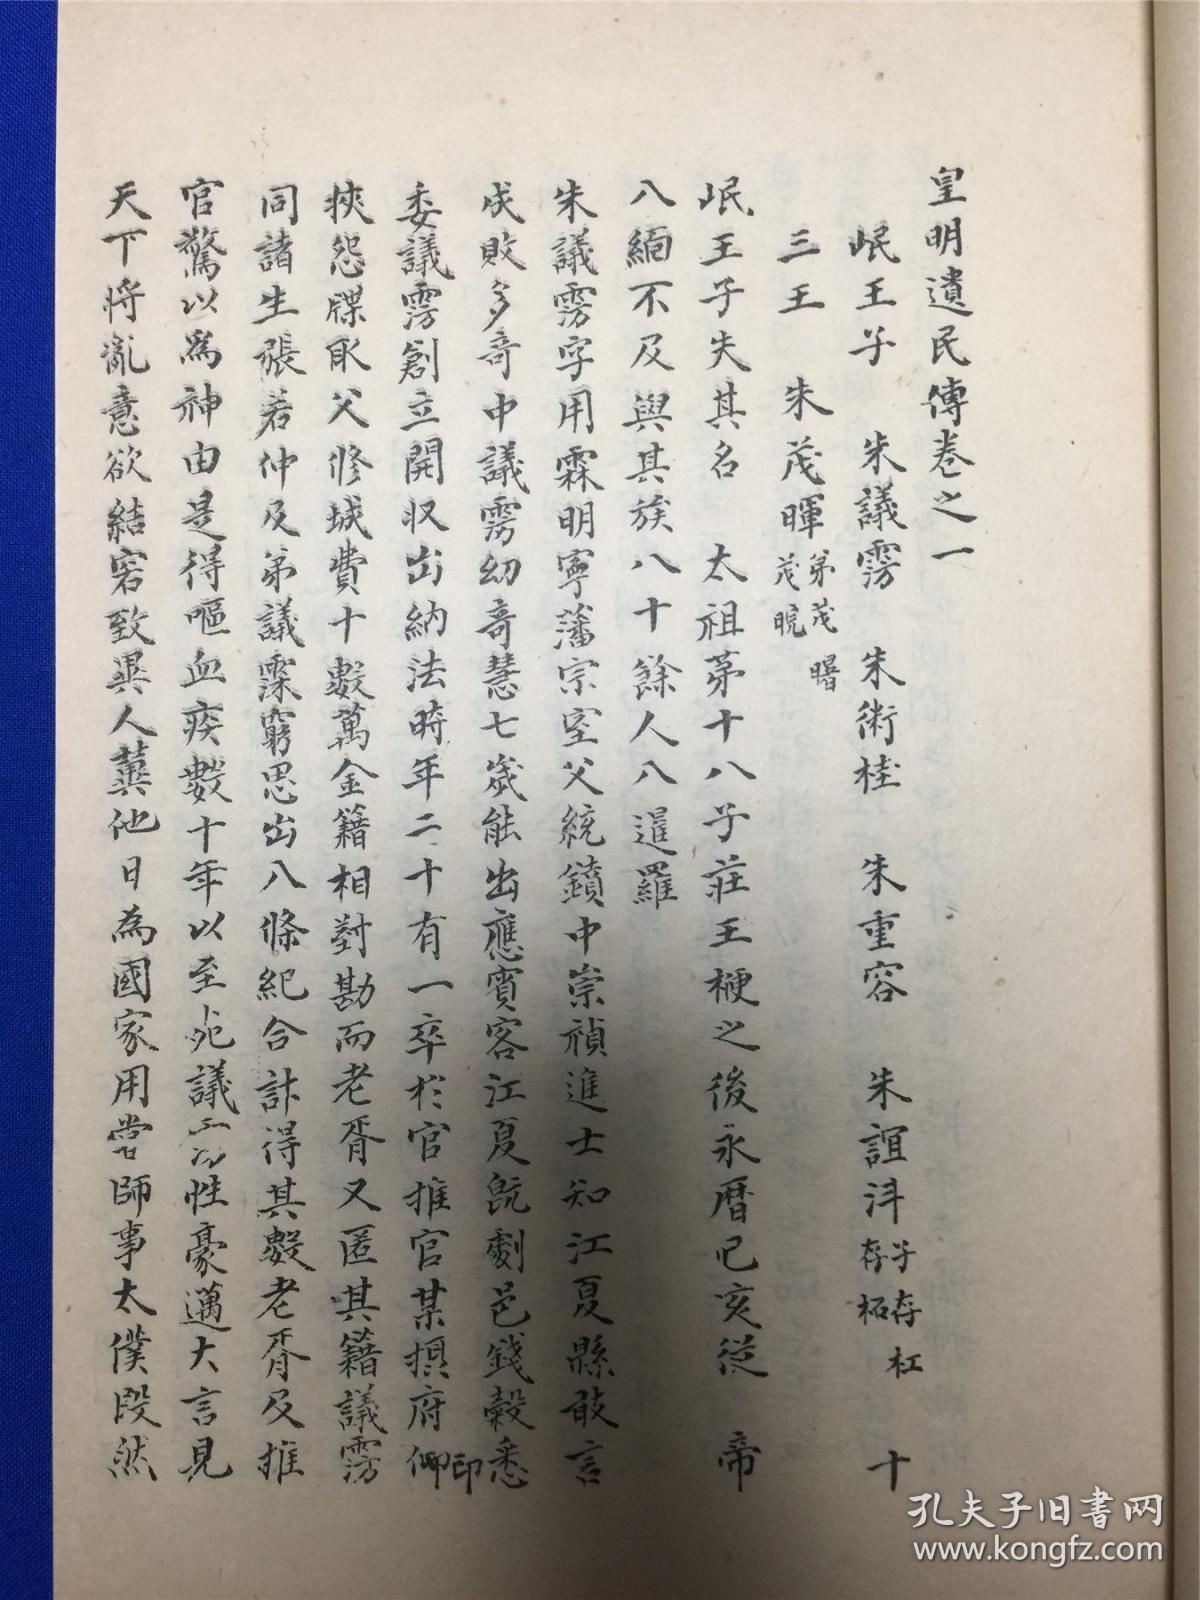 皇明遺民傳卷之一
岷王子 朱議霶 朱術桂 朱重容 朱誼泮 子存杠 存柘 十
三王 朱茂暉 弟茂曙 茂晼
岷王子失其名 太祖第十八子莊王楩之後永曆己亥從 帝
八緬不及與其族八十餘人八暹羅
朱議霶字用霖明寧藩宗室父統鐼中崇禎進士知江夏縣敢言
成敗多奇中議霶幼奇慧七歲能出應賓客江夏既劇邑錢穀悉
委議霶創立開収出納法時年二十有一卒於官推官某損府仰印
挾怨牒取父修城費十數萬金籍相對勘而老胥又匿其籍議霶
同諸生張若仲及弟議霂窮思出八條紀合計得其數老胥及推
官驚以爲神由是得嘔血疾數十年以至死議霶性豪邁大言見
天下將亂意欲結宕致異人冀他日為國家用嘗師事太僕段然
孔夫子旧书网
www.kongfz.com